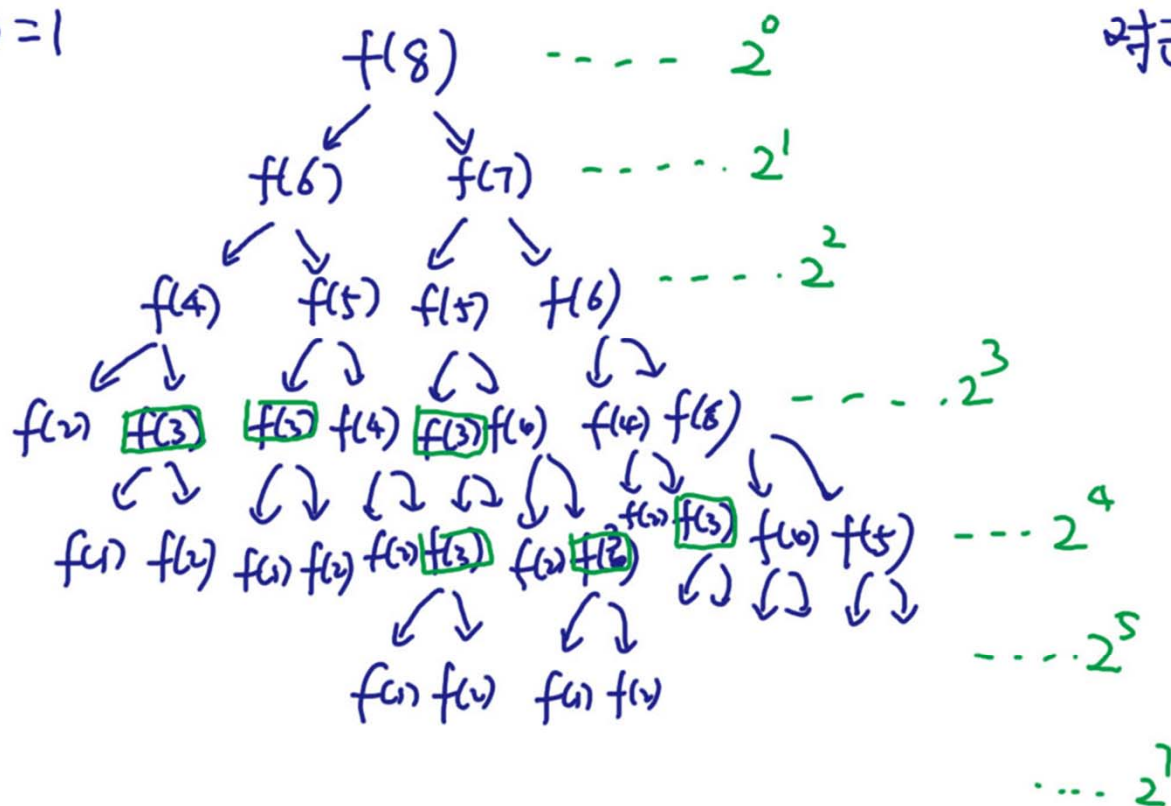 =1
f(8) ---- 2^0
f(6) f(7) ----- 2^1
f(4) f(5) f(5) f(6) ---- 2^2
f(2) f(3) f(3) f(4) f(3) f(4) f(5) ---- 2^3
f(1) f(2) f(1) f(2) f(2) f(3) f(2) f(2) f(3) f(5) --- 2^4
---- 2^5
f(1) f(2) f(1) f(2)
.... 2^7